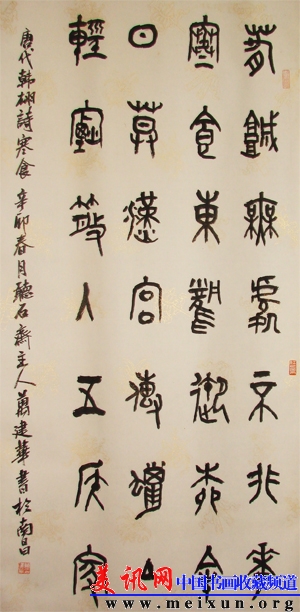 春城無處不飛花
寒食東風御柳斜
日暮漢宮傳蠟燭
輕煙散入五侯家
唐代韓翃詩寒食 辛卯春月聽石齋主人蕭建華書於南昌
美讯网 中国书画收藏频道
www.meixun.org